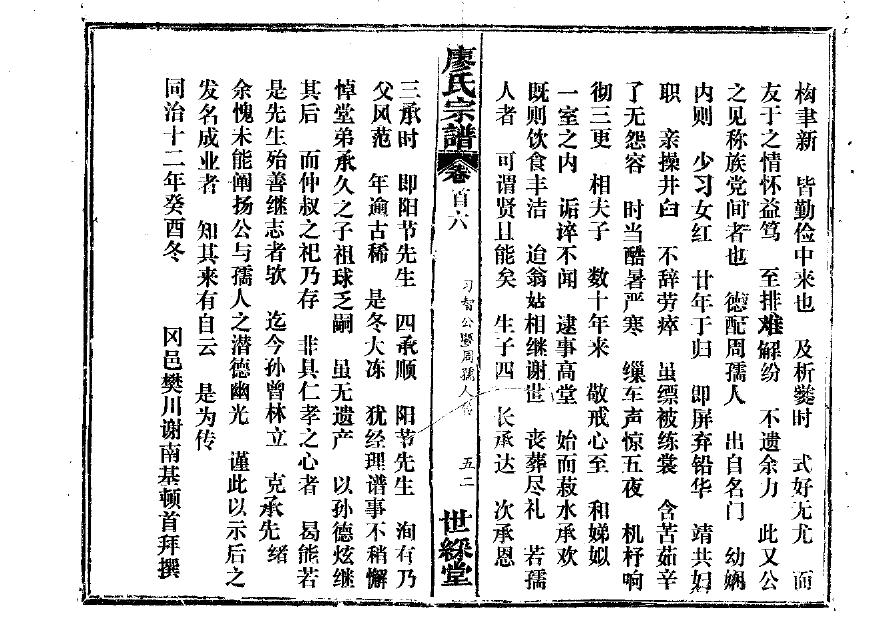 构聿新　皆勤俭中来也　及析爨时　式好无尤　而
友于之情怀益笃　至排难解纷　不遗余力　此又公
之见称族党间者也　德配周孺人　出自名门　幼娴
内则　少习女红　廿年于归　即屏弃铅华　靖共妇
职　亲操井臼　不辞劳瘁　虽缥被练裳　含苦茹辛
了无怨容　时当酷暑严寒　缫车声惊五夜　机杼响
彻三更　相夫子　数十年来　敬戒心至　和娣姒
一室之内　诟谇不闻　逮事高堂　始而菽水承欢
既则饮食丰洁　迨翁姑相继谢世　丧葬尽礼　若孺
人者　可谓贤且能矣　生子四　长承达　次承恩
廖氏宗谱　卷首六　习智公暨周孺人传　五二　世綵堂
三承时　即阳节先生　四承顺　阳节先生　洵有乃
父风范　年逾古稀　是冬大冻　犹经理谱事不稍懈
悼堂弟承久之子祖球乏嗣　虽无遗产　以孙德炫继
其后　而仲叔之祀乃存　非具仁孝之心者　曷能若
是先生殆善继志者欤　迄今孙曾林立　克承先绪
余愧未能阐扬公与孺人之潜德幽光　谨此以示后之
发名成业者　知其来有自云　是为传
同治十二年癸酉冬　冈邑樊川谢南基顿首拜撰